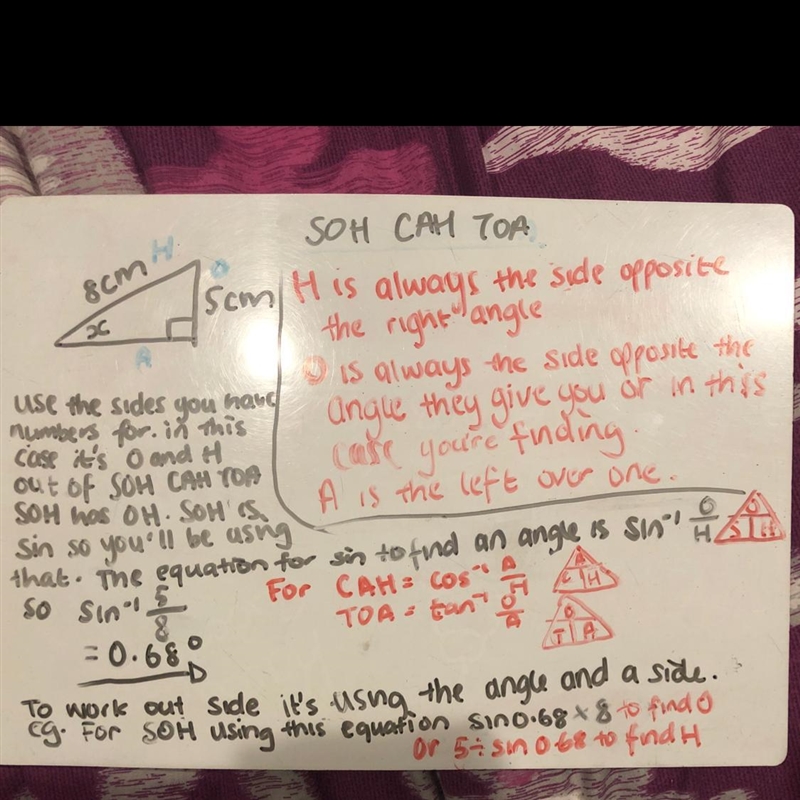 SOH CAH TOA
8cm H O
5cm
x
A
H is always the side opposite
the right angle
O is always the side opposite the
angle they give you or in this
case you're finding.
A is the left over one.
use the sides you have
numbers for. in this
case it's O and H
out of SOH CAH TOA
SOH has OH. SOH is
sin so you'll be using
that. The equation for sin to find an angle is sin⁻¹ O/H
O
S H
For CAH = cos⁻¹ A/H
A
C H
TOA = tan⁻¹ O/A
O
T A
so sin⁻¹ 5/8
= 0.68°
To work out side it's usng the angle and a side.
eg. For SOH using this equation sin0.68 × 8 to find O
Or 5÷sin 0.68 to find H